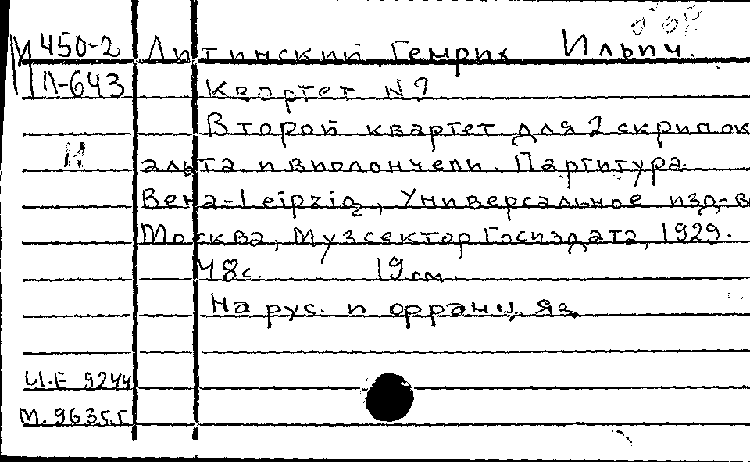 М 450-2 Литинский Генрих Ильич.
Л-643 Квартет №2
Второй квартет для 2 скрипок
Н альта и виолончели. Партитура
Вена-Leipzig, Универсальное изд-в
Москва, Музсектор Госиздата, 1929.
48с. 19см.
На рус. и франц. яз.
И-Е 9244
М. 9635г.